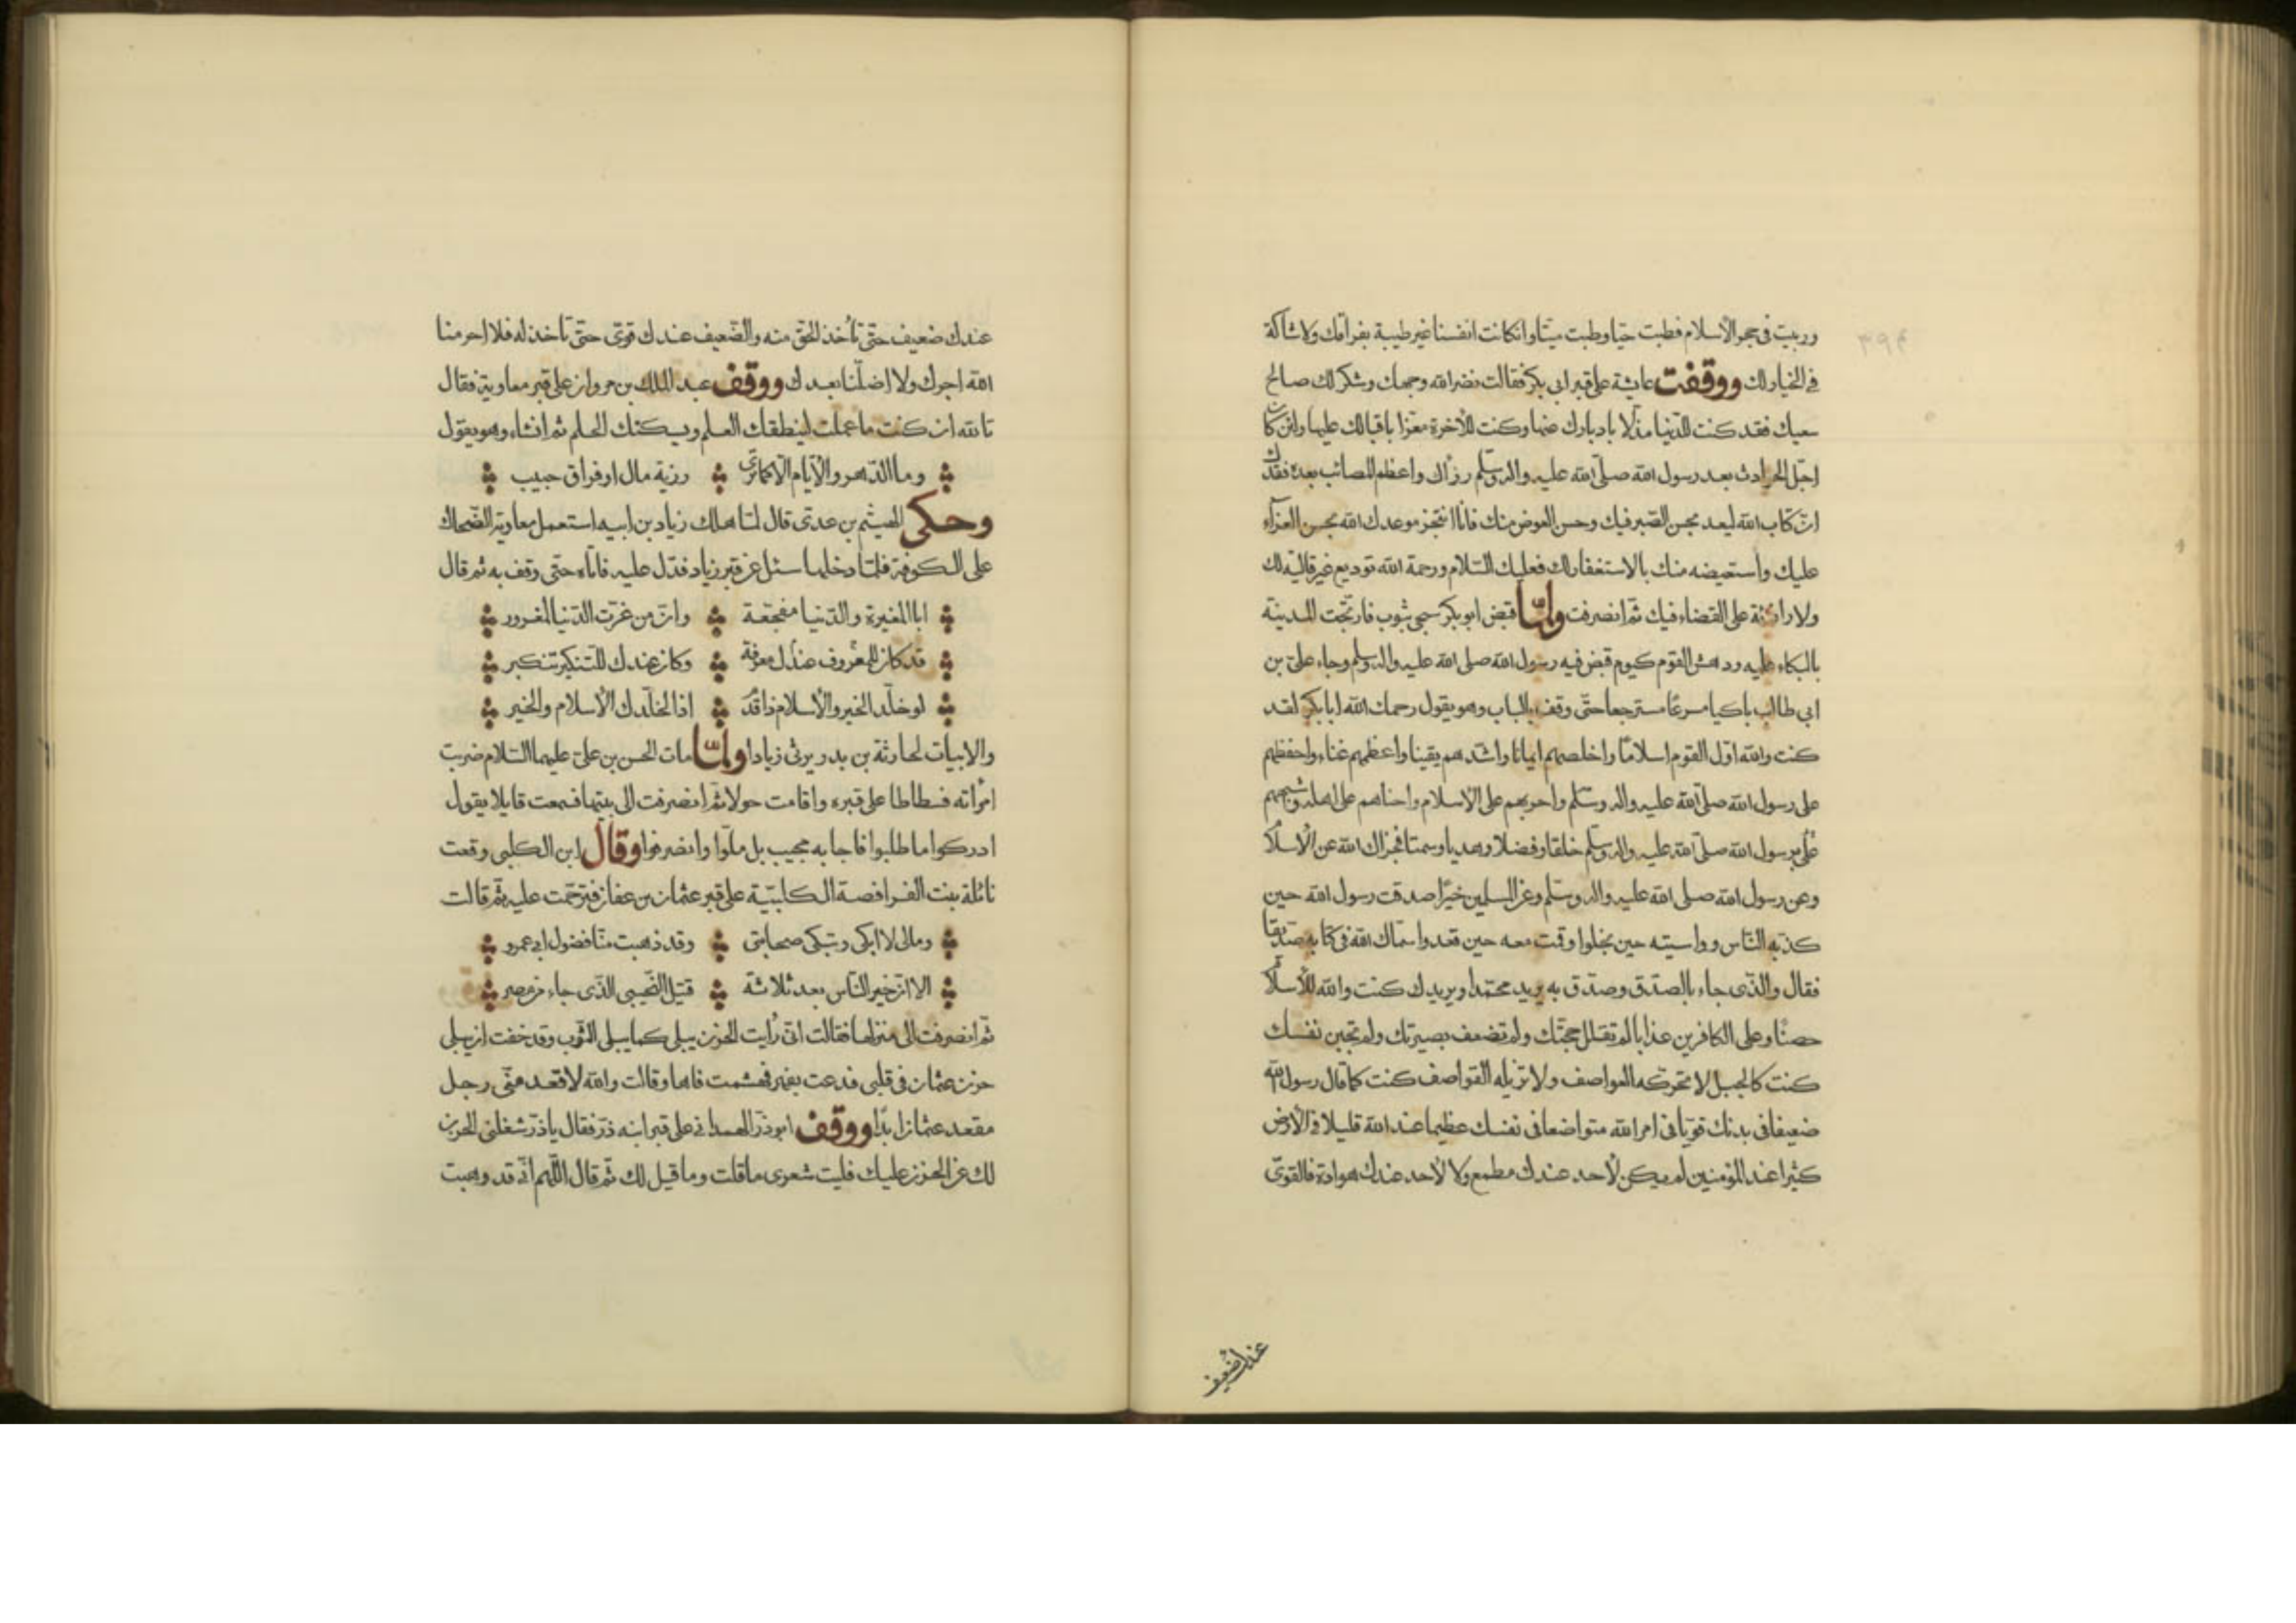 وربيت فى حجر الأسلام فطبت حيّا وطبت ميتا وان كانت انفسنا غير طيبة بفراقك ولا شاكة
فى الخيار لك ووقفت عايشة على قبر ابى بكر فقالت نضر الله وجهك وشكر لك صالح
سعيك فقد كنت للدّنيا مذلا بادبارك عنها وكنت للأخرة معزا باقبالك عليها ولئن كان
اجلّ الحوادث بعد رسول الله صلّى الله عليه واله وسلّم رزأك واعظم المصائب بعده فقدك
انّ كتاب الله ليعد بحسن الصّبر فيك وحسن العوض منك فانا انتجز موعدك الله بحسن العزآء
عليك واستعيضه منك بالاستغفار لك فعليك السّلام ورحمة الله توديع غير قاليه لك
ولا رازئة على القضاء فيك ثم انصرفت ولمّا قبض ابو بكر سجى بثوب فارتجّت المدينة
بالبكاء عليه ودهش القوم كيوم قبض فيه رسول الله صلى الله عليه واله وسلم وجاء علىّ بن
ابى طالب باكيا مسرعًا مسترجعا حتّى وقف بالباب وهو يقول رحمك الله ابا بكر لقد
كنت والله اوّل القوم اسلامًا واخلصهم ايمانا واشدّهم يقينا واعظمهم غناء واحفظهم
على رسول الله صلّى الله عليه واله وسلّم واحربهم على الأسلام واحناهم على اهله وشبههم
برسول الله صلّى الله عليه واله وسلّم خلقا وفضلا وهديا وسمتا فجزاك الله عن الأسلام
وعن رسول الله صلى الله عليه واله وسلم وعن المسلمين خيرًا صدقت رسول الله حين
كذبه النّاس وواسيته حين بخلوا وقمت معه حين قعدوا سمّاك الله فى كتابه صدّيقا
فقال والّذى جاء بالصدق وصدّق به يريد محمّدا ويريدك كنت والله للأسلام
حصنًا وعلى الكافرين عذابا لم تقلل حجّتك ولم تضعف بصيرتك ولم تجبن نفسك
كنت كالجبل لا تحرّكه العواصف ولا تزيله القواصف كنت كما قال رسول الله
ضعيفا فى بدنك قويّا فى امر الله متواضعا فى نفسك عظيما عند الله قليلا فى الأرض
كثيرا عند المؤمنين لم يكن لأحد عندك مطمع ولا لأحد عندك هوادة فالقوىّ
عندك ضعيف
عندك ضعيف حتّى تأخذ الحق منه والضّعيف عندك قوىّ حتّى تاخذ له فلا احرمنا
الله اجرك ولا اضلّنا بعدك ووقف عبد الملك بن مروان على قبر معاوية فقال
تالله ان كنت ما عملت لينطقك العلم ويسكتك الحلم ثم انشاء وهو يقول
وما الدّهر والأيّام الّا كما ترى رزية مال او فراق حبيب
وحكى الهيثم بن عدىّ قال لمّا هلك زياد بن ابيه استعمل معاوية الضّحاك
على الكوفة فلمّا دخلها سئل عن قبر زياد فدّل عليه فاتاه حتّى وقف به ثم قال
ابا المغيرة والدّنيا مفجّعة وانّ من غرّت الدّنيا لمغرور
قد كان للمعروف عندك معرفة وكان عندك للتنكير تنكير
لو خلّد الخير والأسلام ذا قدم اذا لخلّدك الأسلام والخير
والابيات لحارثة بن بدر يرثى زيادا ولمّا مات الحسن بن علىّ عليهما السّلام ضربت
امرأته فسطاطا على قبره واقامت حولا ثمّ انصرفت الى بيتها فسمعت قايلا يقول
ادركوا ما طلبوا فاجابه مجيب بل ملّوا وانصرفوا وقال ابن الكلبى وقعت
نائلة بنت الفرافصة الكلبيّة على قبر عثمان بن عفان فترحّمت عليه ثمّ قالت
ومالى لا ابكى وتبكى صحابتى وقد ذهبت منّا فضول ابى عمرو
الا انّ خير النّاس بعد ثلاثة قتيل التّجيبى الّذى جاء من مصر
ثمّ انصرفت الى منزلها فقالت انّى رأيت الحزن يبلى كما يبلى الثّوب وقد خفت ان يبلى
حزن عثمان فى قلبى فدعت بفهر فهشمت فاها وقالت والله لا قعد منّى رجل
مقعد عثمان ابدًا ووقف ابو ذرّ الهمدانى على قبر ابنه ذرّ فقال يا ذرّ شغلنى الحزن
لك عن الحزن عليك فليت شعرى ما قلت وما قيل لك ثمّ قال اللّهم انّى قد وهبت